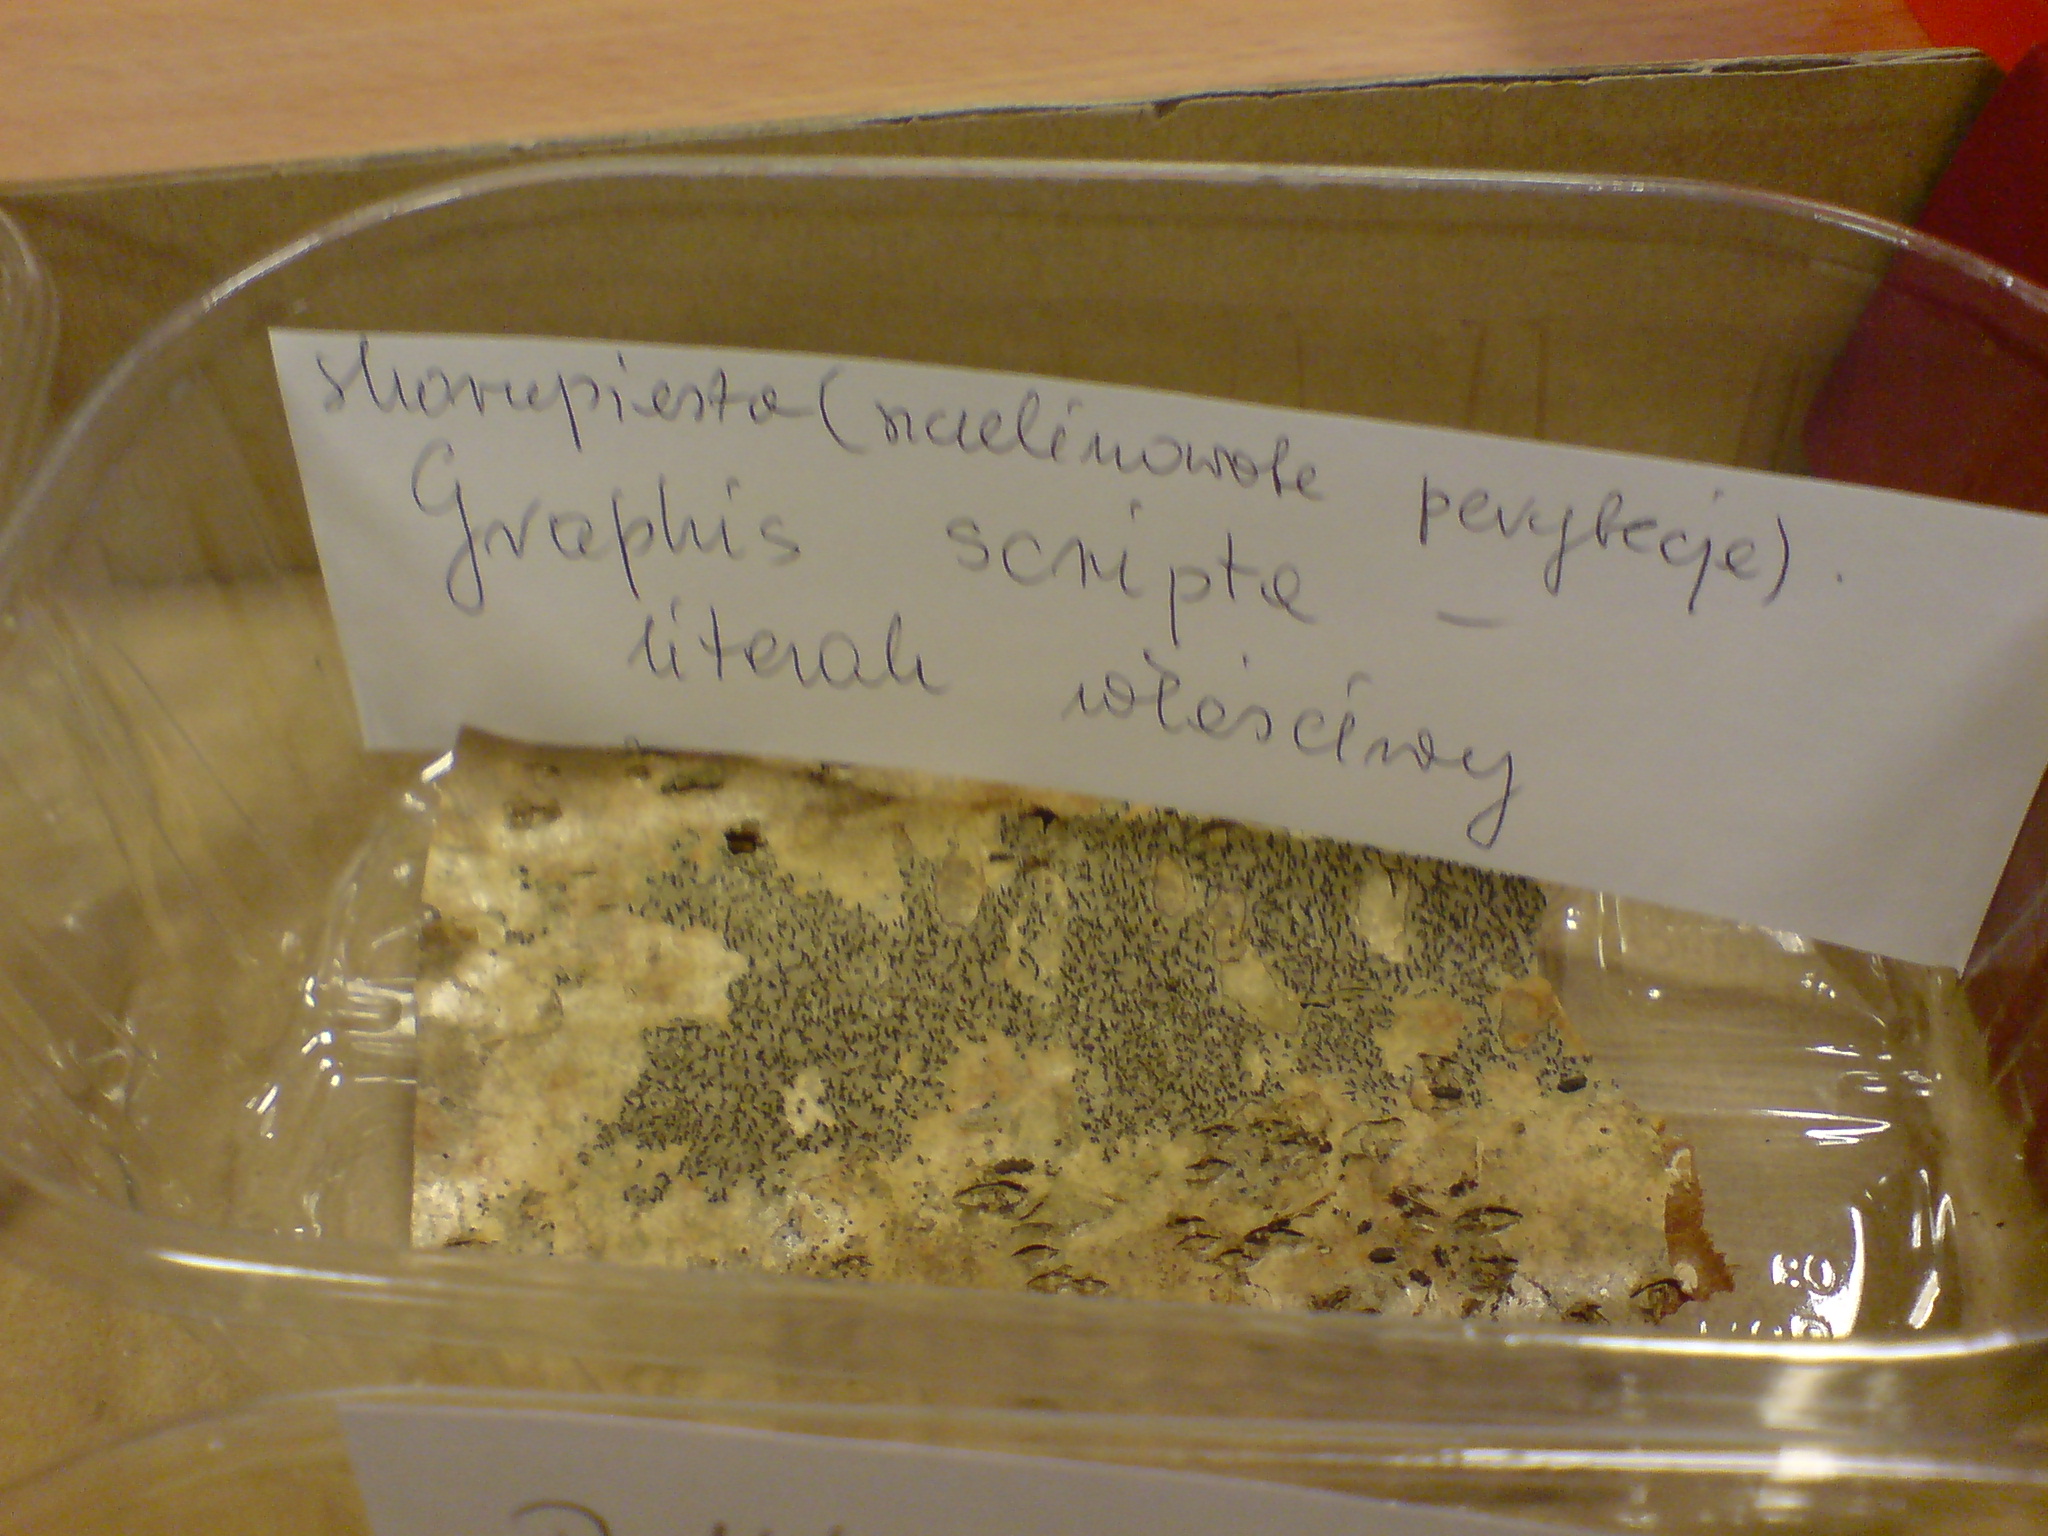 skorupiasta (malinowate perytecja).
Graphis scripta –
literak właściwy